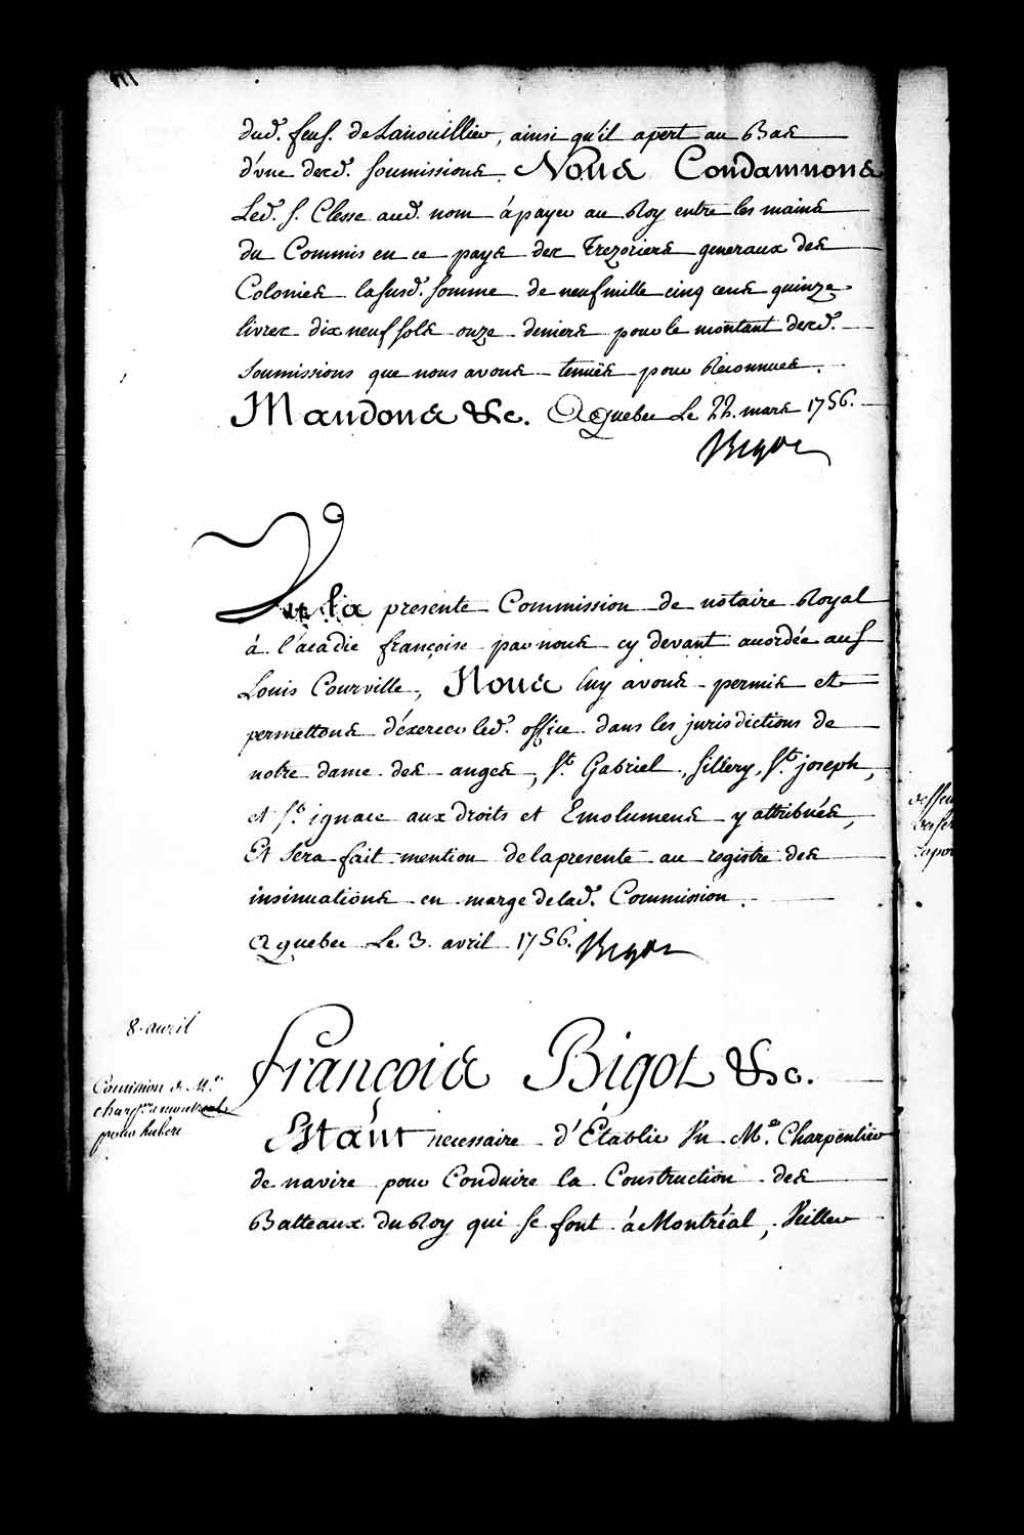 dud. feu s. de Lanouillier, ainsi qu'il apert au Bas
d'une desd. soumissions. Nous Condamnons
Led. s. Clesse aud. nom à payer au Roy entre les mains
du Commis en ce pays des Trezoriers generaux des
Colonies la susd. somme de neuf mille cinq cens quinze
livres dix neuf sols onze deniers pour le montant desd.
soumissions que nous avons tenuës pour Reconnues.
Mandons &c. A Quebec Le 22. mars 1756.
Bigot
Vu la presente Commission de notaire Royal
à l'acadie françoise par nous cy devant accordée au S
Louis Courville, Nous luy avons permis et
permettons d'éxercer led. office dans les jurisdictions de
notre dame des anges, St. Gabriel, Sillery, St. joseph,
et St. ignace aux droits et Emolumens y attribués,
Et sera fait mention de la presente au registre des
insinuations en marge de lad. Commission.
A quebec Le 3. avril 1756. Bigot
8. avril
Comission de Me.
charp.er a montreal
pour hubert
françois Bigot &c.
Etant necessaire d'Établir Vn Me. Charpentier
de navire pour Conduire la Construction des
Batteaux du Roy qui se font à Montréal, Veiller